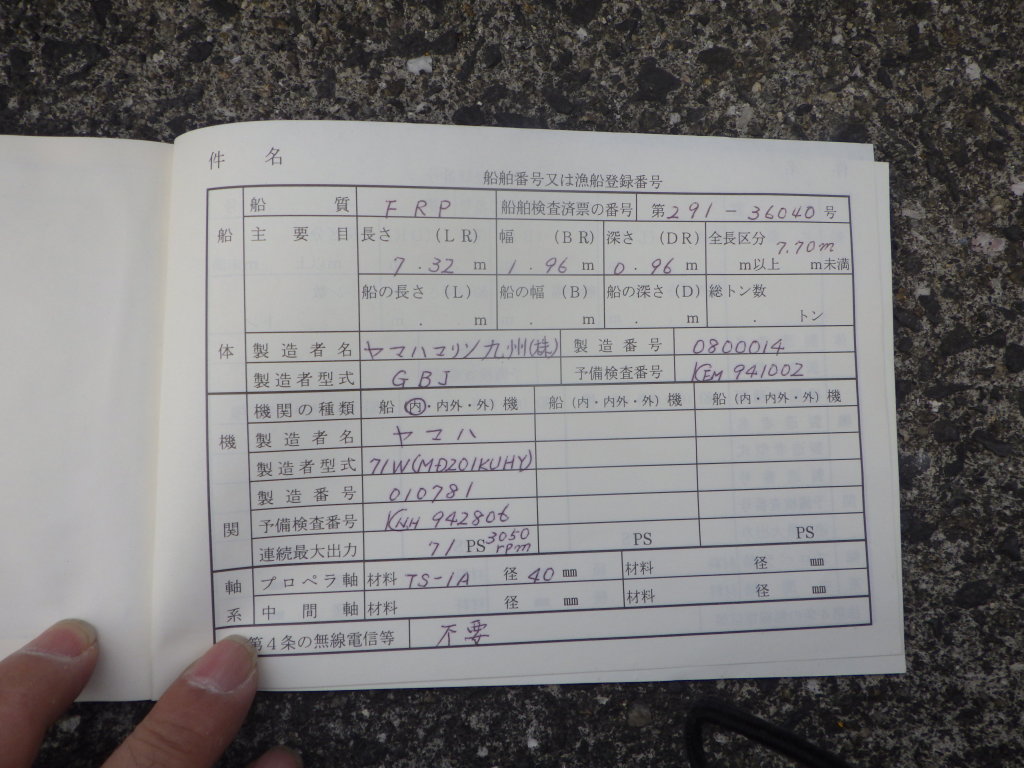 件 名
船舶番号又は漁船登録番号
船 質 FRP 船舶検査済票の番号 第291-36040号
船 主要目 長さ (LR) 幅 (BR) 深さ (DR) 全長区分 7.70m
7.32 m 1.96 m 0.96 m m以上 m未満
船の長さ (L) 船の幅 (B) 船の深さ (D) 総トン数
. m . m . m . トン
体 製造者名 ヤマハマリン九州(株) 製造番号 0800014
製造者型式 GBJ 予備検査番号 KEM 941002
機関の種類 船(内・内外・外)機 船(内・内外・外)機 船(内・内外・外)機
機 製造者名 ヤマハ
製造者型式 71W(MD201KUHY)
製造番号 010781
関 予備検査番号 KNH 942806
連続最大出力 71 PS 3050rpm PS PS
軸 プロペラ軸 材料 TS-1A 径 40 mm 材料 径 mm
系 中間軸 材料 径 mm 材料 径 mm
第4条の無線電信等 不要